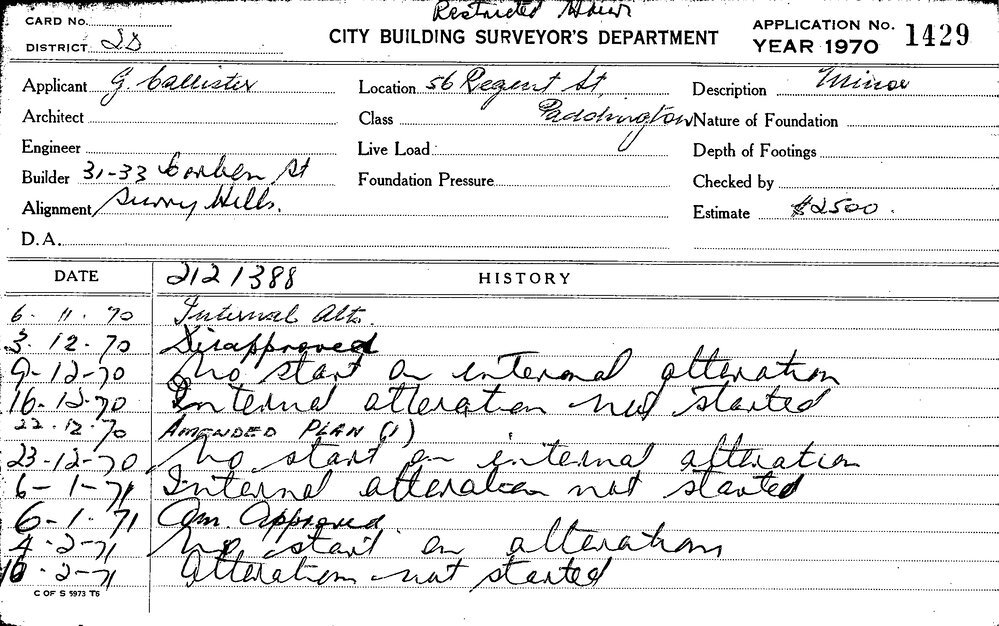 Restricted Hour
CARD No.
DISTRICT 2D
CITY BUILDING SURVEYOR'S DEPARTMENT
APPLICATION No. 1429
YEAR 1970
Applicant G. Callister
Location 56 Regent St,
Description Minor
Architect
Class Paddington
Nature of Foundation
Engineer
Live Load
Depth of Footings
Builder 31-33 Corben St
Foundation Pressure
Checked by
Alignment Surry Hills.
Estimate $2500.
D.A.
DATE 2121388 HISTORY
6. 11. 70 Internal Alts.
3. 12. 70 Disapproved
9-12-70 No start on internal alteration
16-12-70 Internal alteration not started
22.12.70 AMENDED PLAN (1)
23-12-70 No start on internal alteration
6-1-71 Internal alteration not started
6-1.71 Am. Approved.
4-2-71 No start on alteration
10-2-71 Alteration not started
C OF S 5973 T6